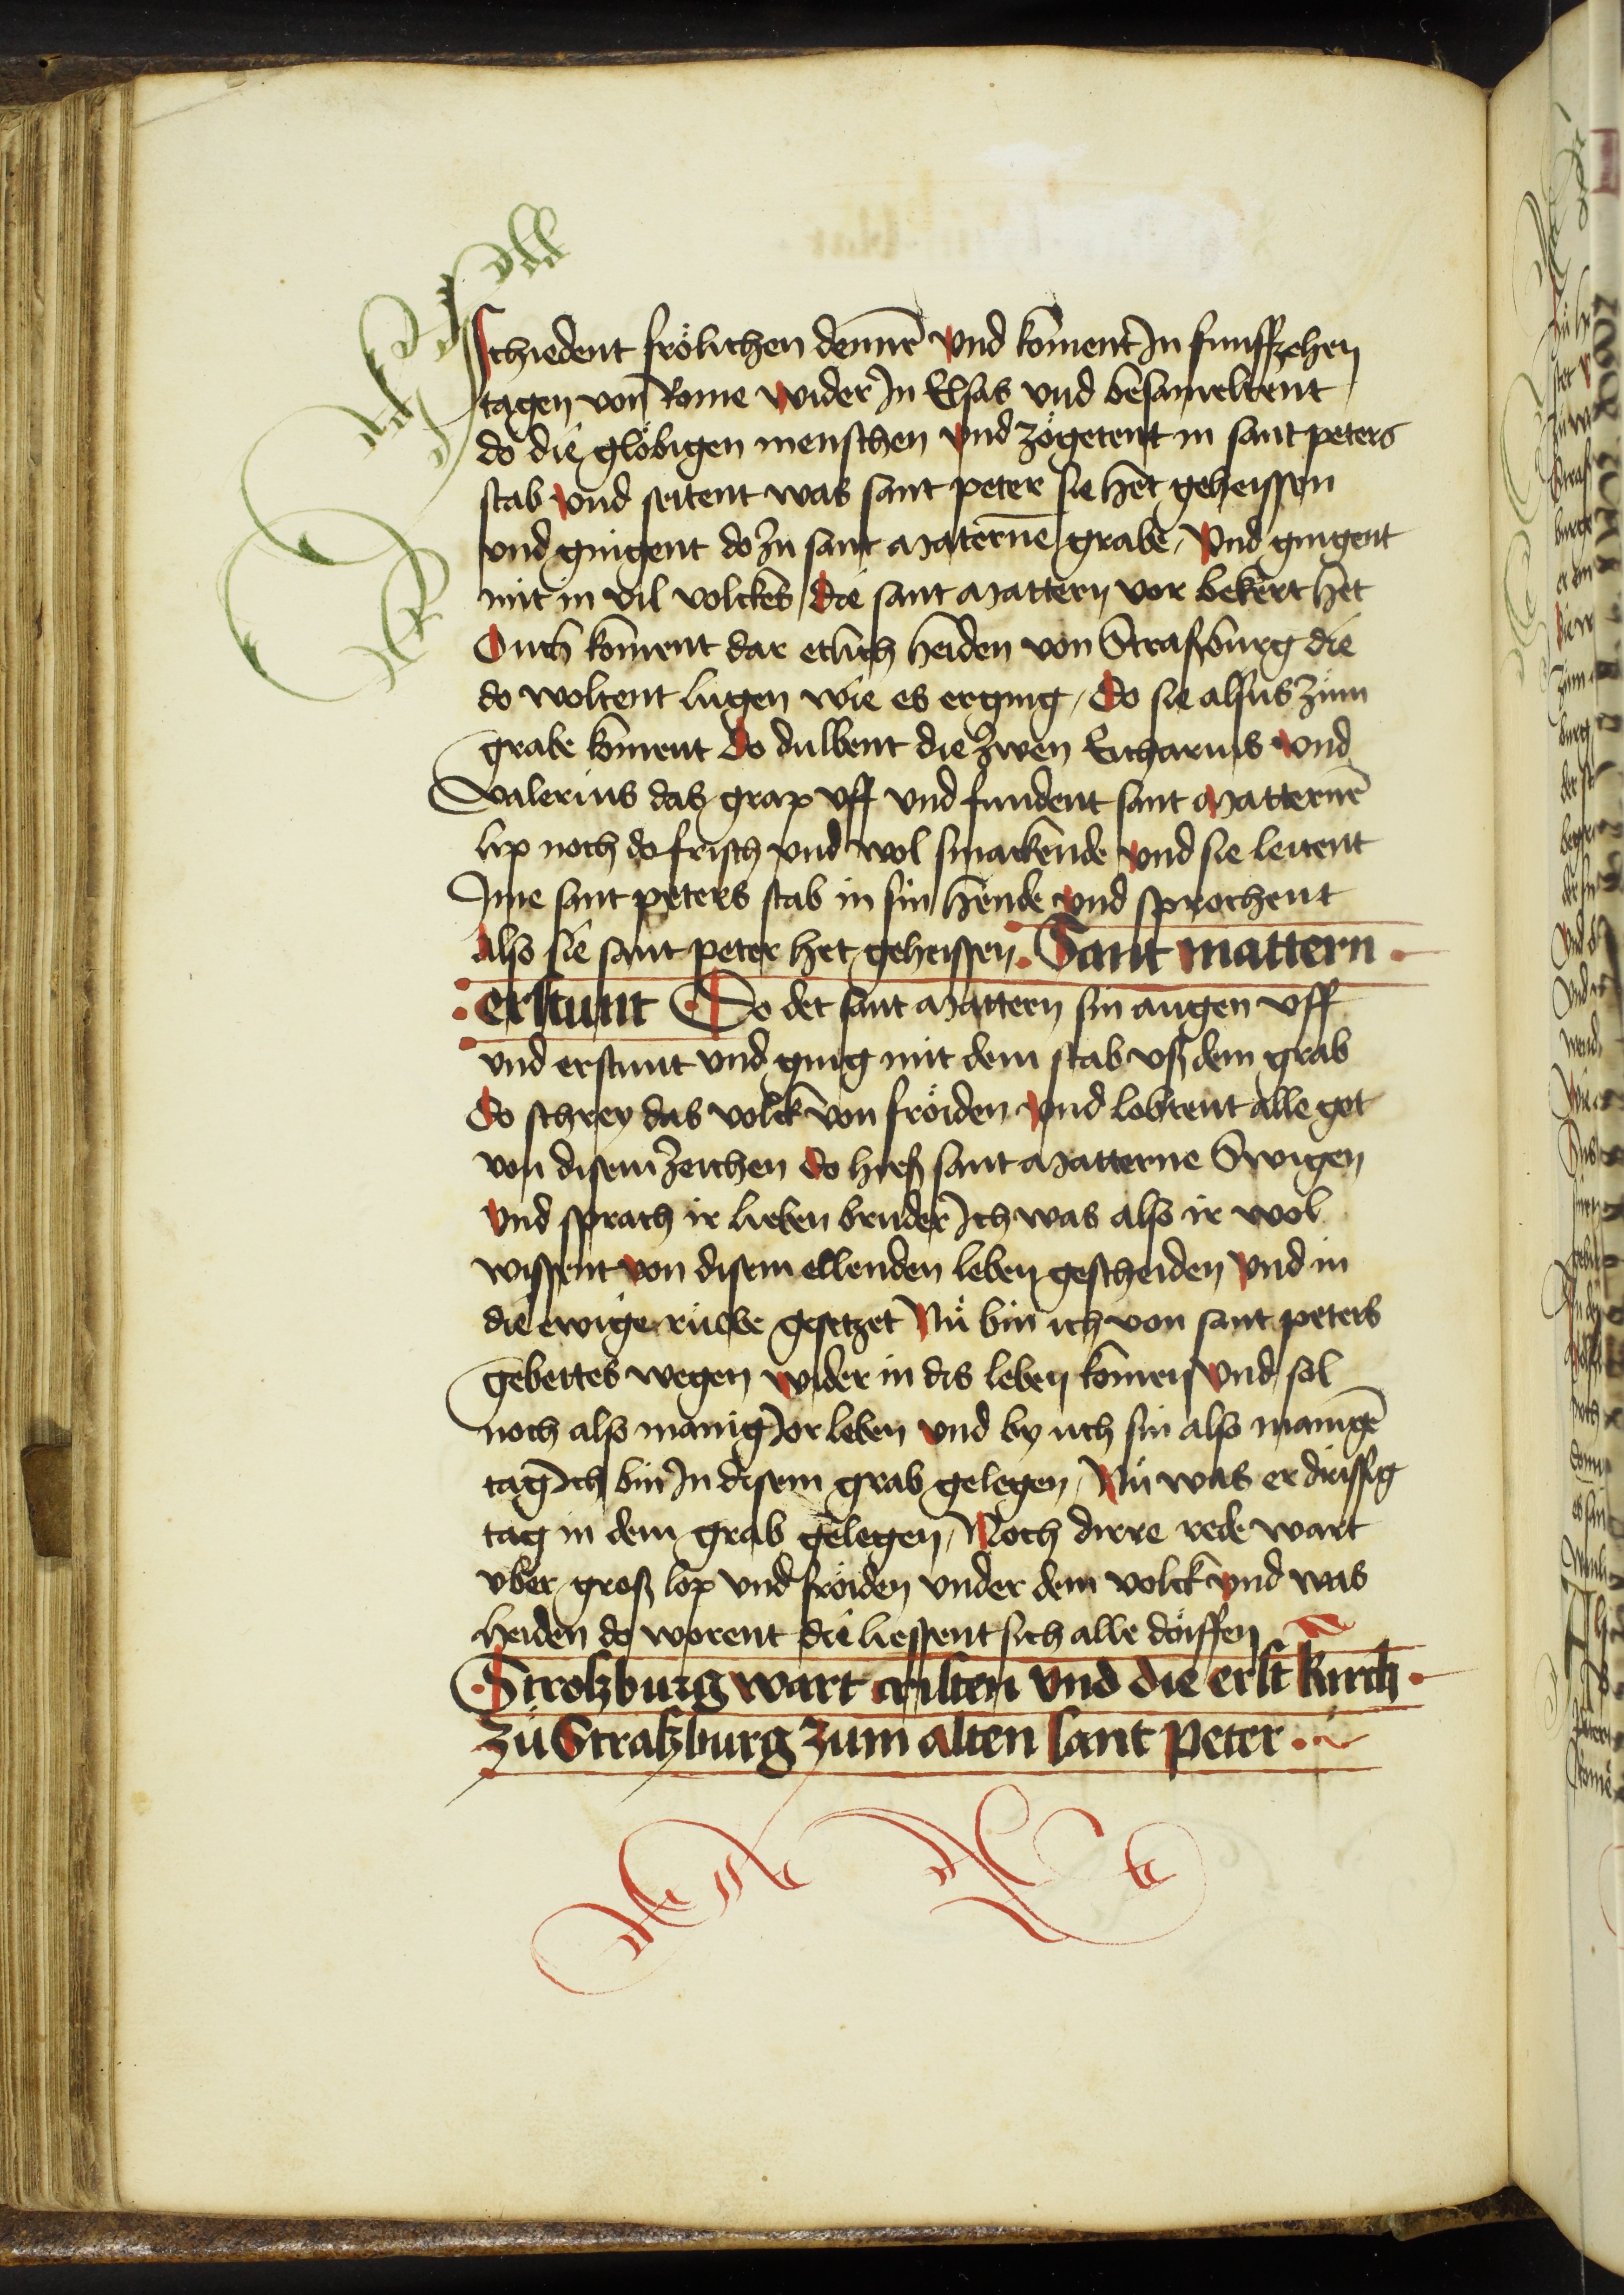 schiedent frölichen dennē vnd koment In funffzehen
tagen von Rome wider In Elsas vnd besameltent
do die glöbigen menschen vnd zögetent in sant peters
stab vnd seitent was sant peter sie het geheissen
vnd gingent do zu sant Maternē grabe / vnd gingent
mit in vil volckes / die sant Mattern vor bekert het
Ouch koment dar etlich heiden von Straßburg die
do woltent lůgen wie es erging / Do sie alsus zům
grabe koment Do dulbent die zwen Eucharius vnd
valerius das grap vff vnd fundent sant Matternē
lip noch do frisch vnd wol smackende vnd sie leitent
Ime sant peters stab in sin hende vnd sprochent
Also sie sant peter het geheissen. Sant mattern .
. erstunt Do det sant Mattern sin augen vff
vnd erstunt vnd ging mit dem stab vß dem grab
Do schrey das volck von fröiden vnd lobtent alle got
von disem zeichen do hieß sant Matterne Swigen
vnd sprach ir lieben bruder Ich was also ir wol
wissent von disem ellenden leben gescheiden vnd in
die ewige růwe gesetzet Nů bin ich von sant peters
gebettes wegen wider in dis leben komen vnd sol
noch also manig Jor leben vnd by uch sin also manigē
tag Ich bin In disem grab gelegen / Nů was er drissig
tag in dem grab gelegen / Noch dirre rede wart
vber groß lop vnd fröiden vnder dem volck vnd was
heiden do worent die liessent sich alle döiffen
. Stroßburg wart cristen vnd die erst kirch .
zů Straßburg zum alten sant peter . .